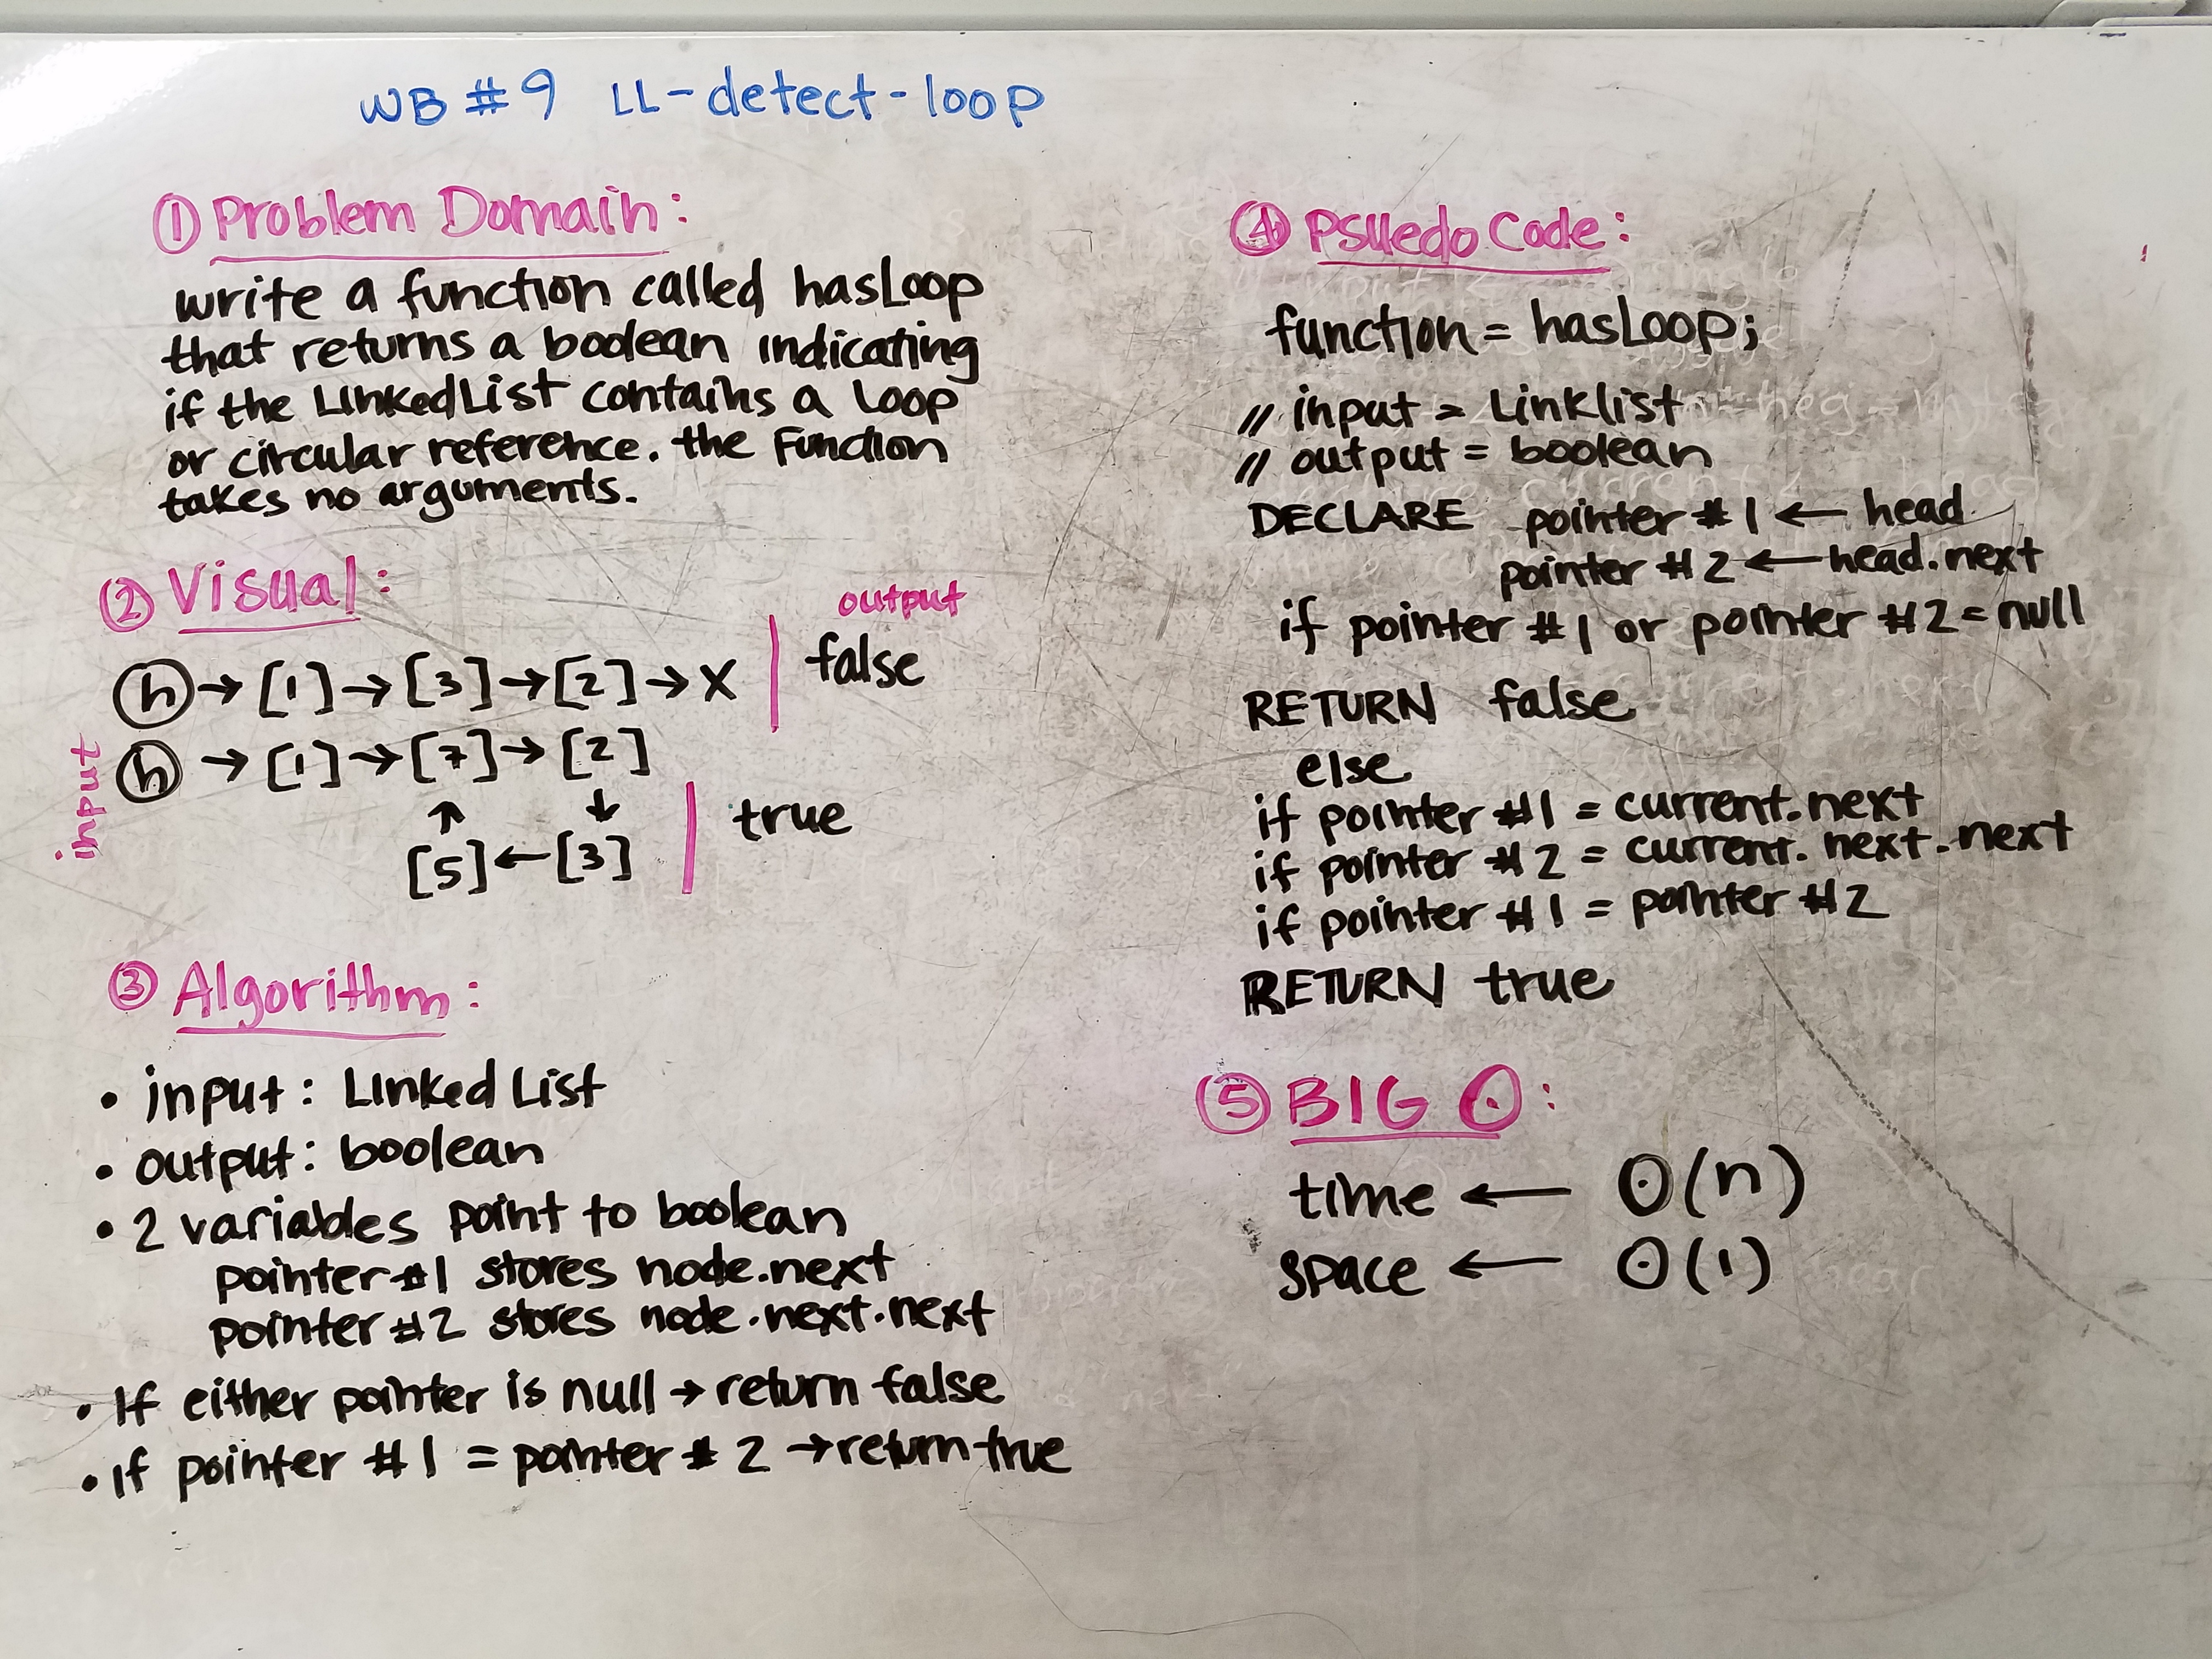 WB #9 LL-detect-loop
① Problem Domain:
write a function called hasLoop
that returns a boolean indicating
if the LinkedList contains a Loop
or circular reference. the Function
takes no arguments.
② Visual:
output
input
ⓗ → [1] → [3] → [2] → X | false
ⓗ → [1] → [7] → [2]
↑ ↓
[5] ← [3] | true
③ Algorithm:
• input: Linked List
• output: boolean
• 2 variables point to boolean
pointer #1 stores node.next
pointer #2 stores node.next.next
• If either pointer is null → return false
• If pointer #1 = pointer #2 → return true
④ Psuedo Code:
function = hasLoop;
// input = Linklist
// output = boolean
DECLARE pointer #1 ← head
pointer #2 ← head.next
if pointer #1 or pointer #2 = null
RETURN false
else
if pointer #1 = current.next
if pointer #2 = current.next.next
if pointer #1 = pointer #2
RETURN true
⑤ BIG O:
time ← O(n)
space ← O(1)